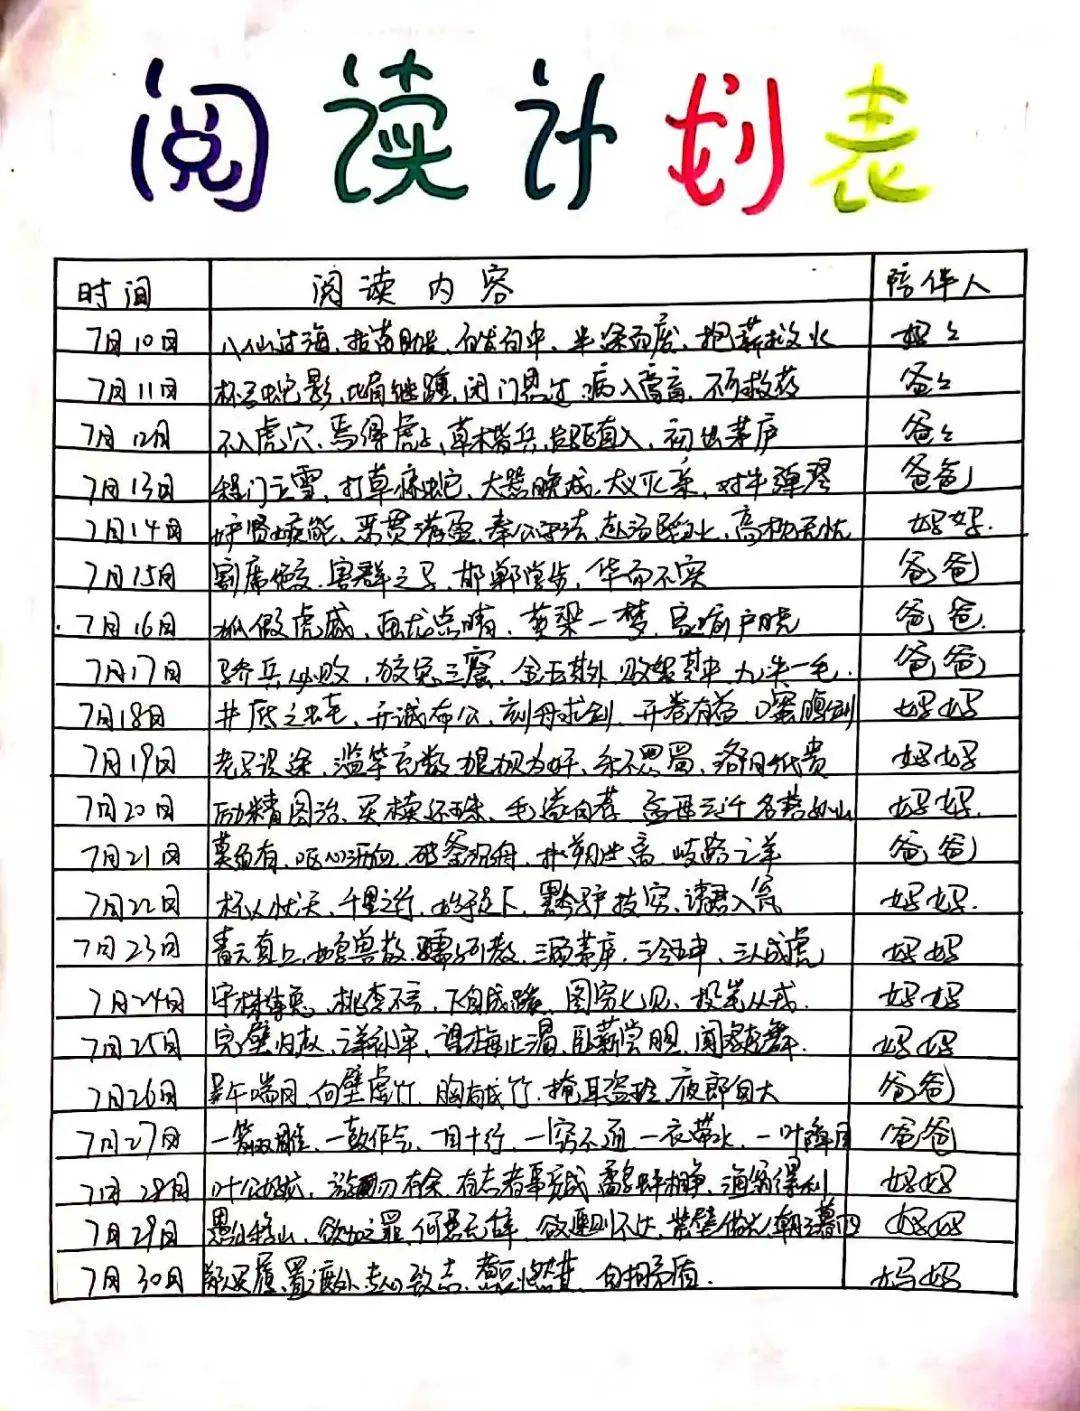 阅读计划表
时间 阅读内容 陪伴人
7月10日 八仙过海、拔苗助长、百发百中、半途而废、抱薪救火 妈々
7月11日 杯弓蛇影、比肩继踵、闭门思过、病入膏肓、不可救药 爸々
7月12日 不入虎穴、焉得虎子、草木皆兵、长驱直入、初出茅庐 爸々
7月13日 程门立雪、打草惊蛇、大器晚成、大义灭亲、对牛弹琴 爸爸
7月14日 妒贤嫉能、恶贯满盈、奉公守法、赴汤蹈火、高枕无忧 妈妈.
7月15日 割席绝交、害群之马、邯郸学步、华而不实 爸爸
7月16日 狐假虎威、画龙点睛、黄梁一梦、家喻户晓 爸爸.
7月17日 骄兵必败、狡兔三窟、金玉其外、败絮其中、九牛一毛. 爸爸
7月18日 井底之蛙、开诚布公、刻舟求剑、开卷有益、口蜜腹剑 妈妈
7月19日 老马识途、滥竽充数、狼狈为奸、乐不思蜀、洛阳纸贵 妈妈
7月20日 励精图治、买椟还珠、毛遂自荐、孟母三迁 名落孙山 妈妈.
7月21日 莫须有、呕心沥血、破釜沉舟、扑朔迷离、歧路亡羊 爸爸
7月22日 杞人忧天、千里之行、始于足下、黔驴技穷、请君入瓮 妈妈.
7月23日 青云直上、如鸟兽散、孺子可教、三顾茅庐、三令五申、三人成虎 妈妈
7月24日 守株待兔、桃李不言、下自成蹊、图穷匕见、投笔从戎. 妈妈
7月25日 完璧归赵、亡羊补牢、望梅止渴、卧薪尝胆、闻鸡起舞. 妈妈
7月26日 吴牛喘月、向壁虚竹、胸有成竹、掩耳盗铃、夜郎自大 爸爸
7月27日 一箭双雕、一鼓作气、一目十行、一窍不通、一衣带水、一叶障目 爸爸
7月28日 叶公好龙、游刃有余、有志者事竟成、鹬蚌相争、渔翁得利 妈妈
7月29日 愚公移山、欲加之罪、何患无辞、欲速则不达、凿壁偷光、朝三暮四 妈妈
7月30日 郑人买履、置之度外、专心致志、惹是生非、自相矛盾. 妈妈